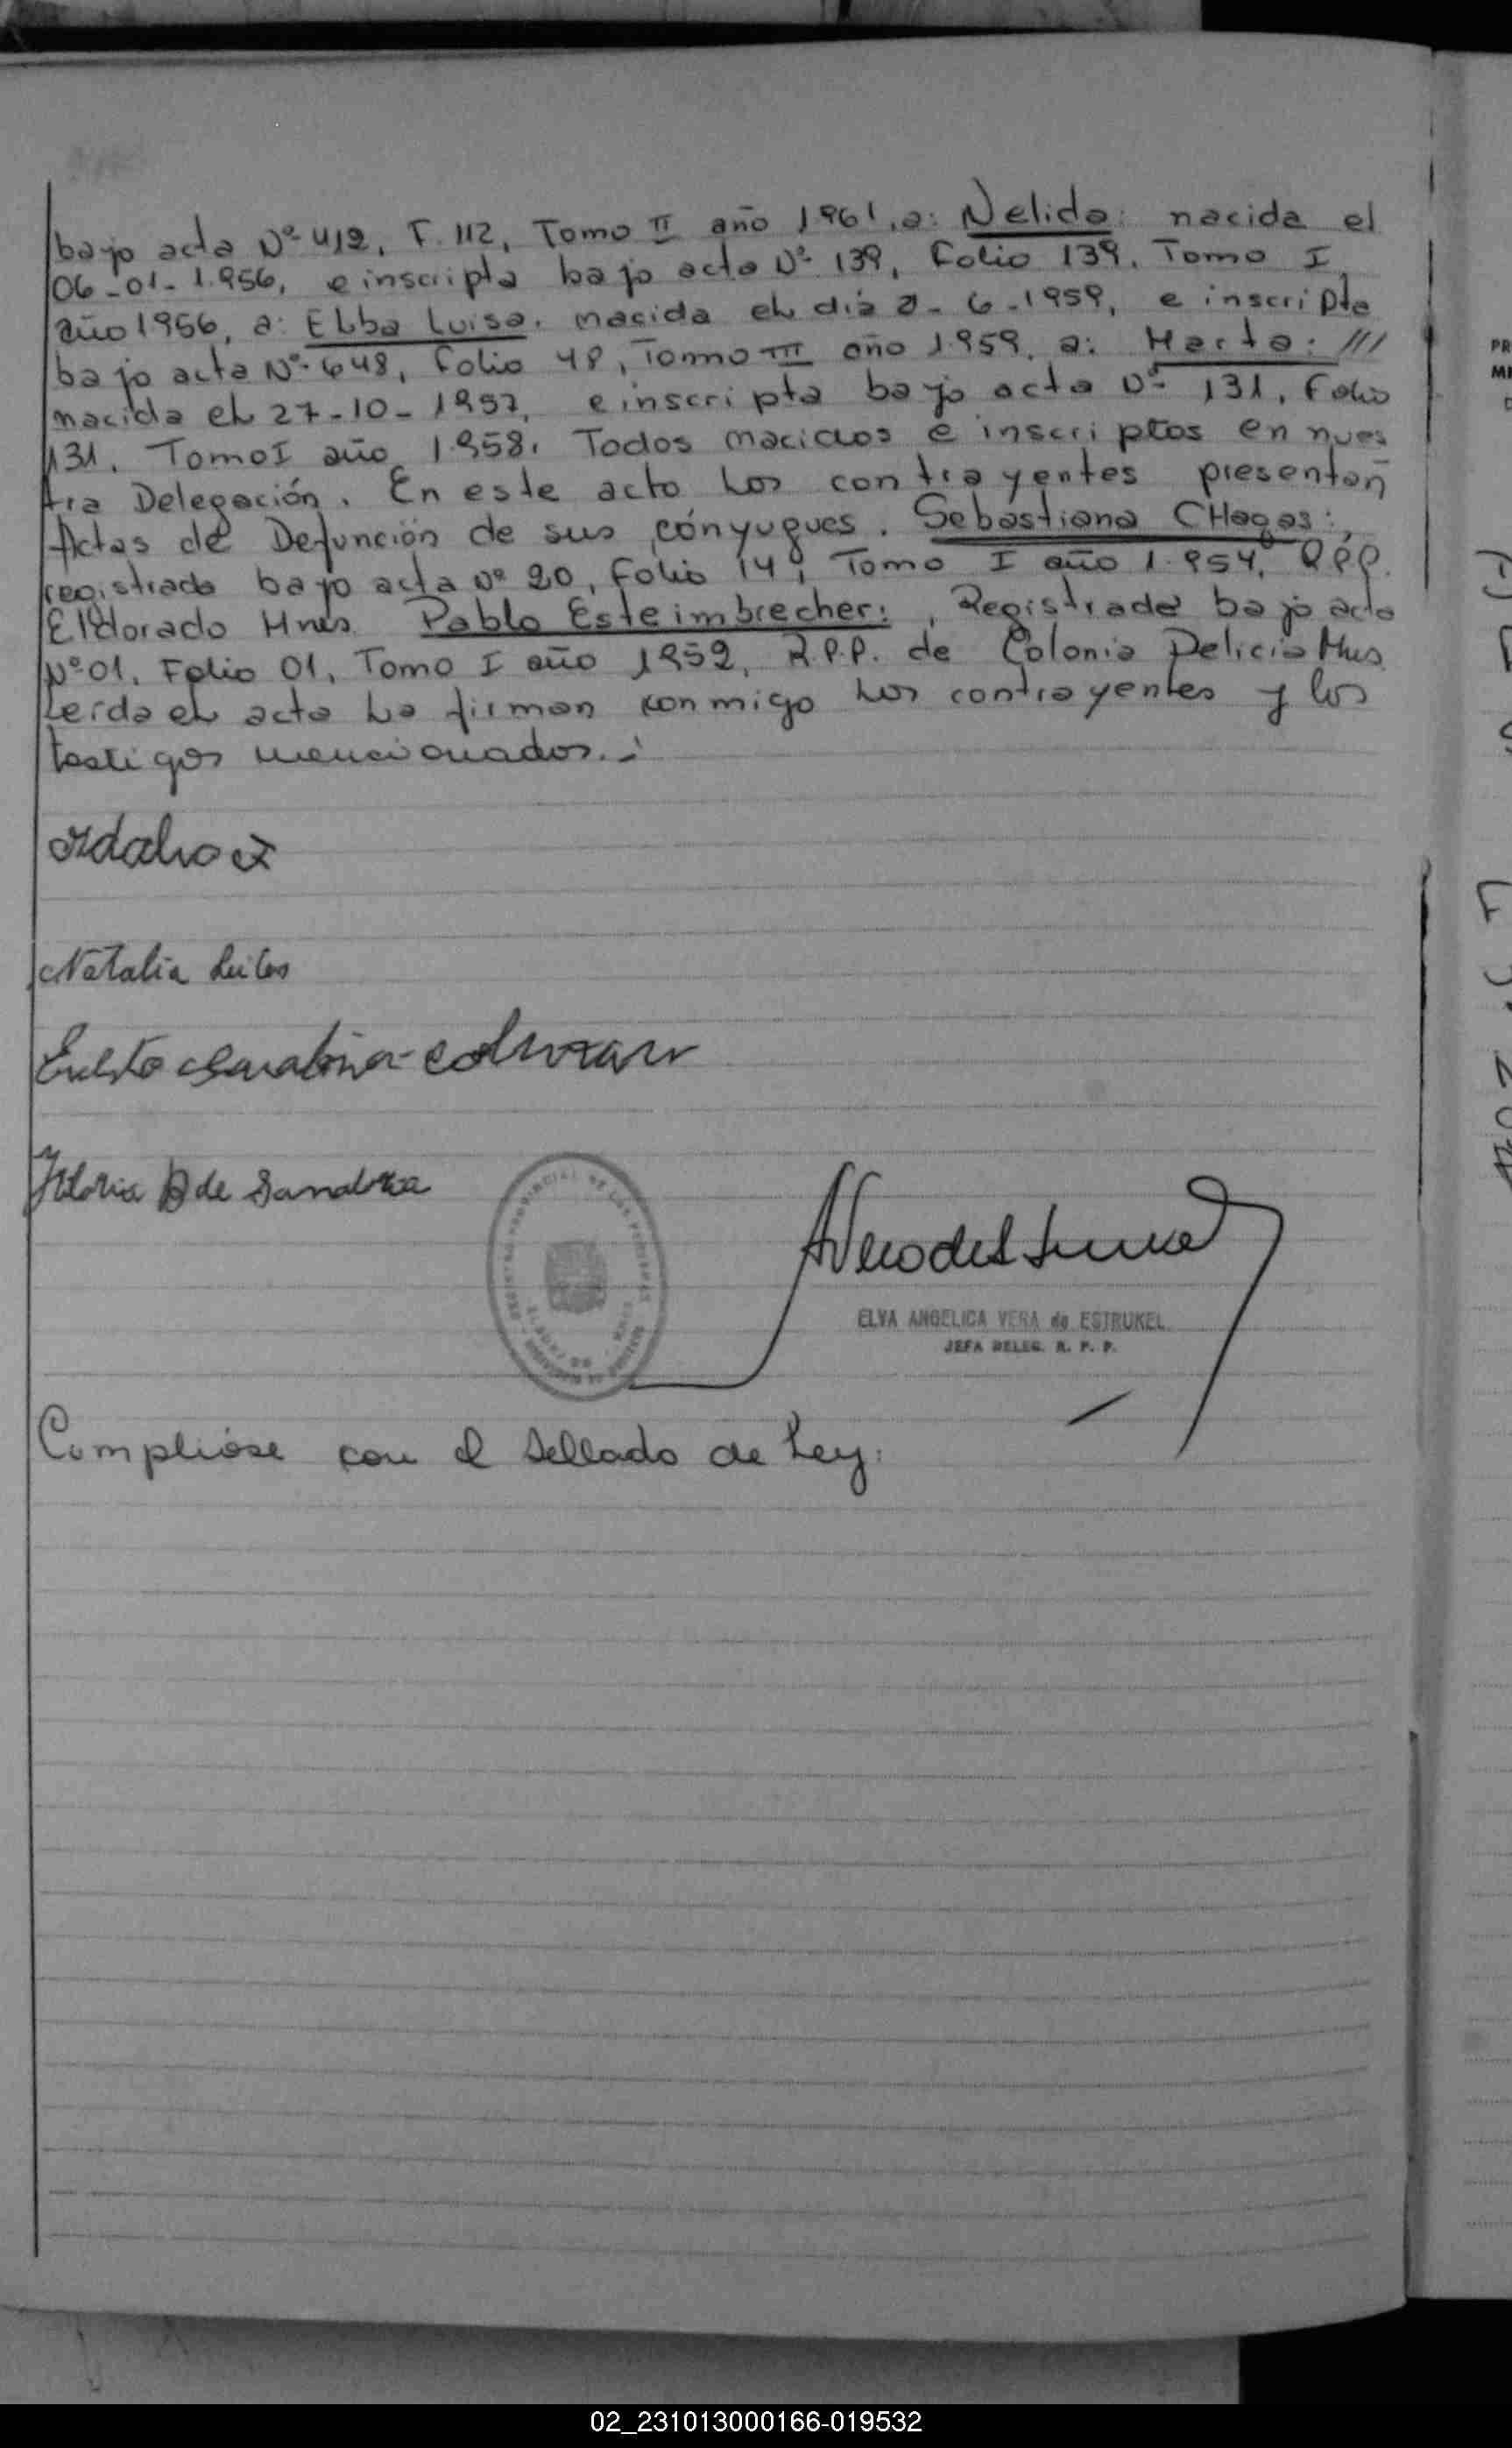 bajo acta Nº 412, F. 112, Tomo II año 1961, a: Nelida: nacida el
06-01-1.956, e inscripta bajo acta Nº 139, Folio 139, Tomo I,
año 1956, a: Elba Luisa, nacida el día 2-6-1959, e inscripta
bajo acta Nº 648, Folio 48, Tomo III año 1.959, a: Marta: ///
nacida el 27-10-1957, e inscripta bajo acta Nº 131, Folio
131, Tomo I año 1.958. Todos nacidos e inscriptos en nues
tra Delegación. En este acto los contrayentes presentan
Actas de Defunción de sus cónyugues. Sebastiana CHagas:,
registrada bajo acta Nº 20, Folio 14, Tomo I año 1.954, R.P.P.
Eldorado Mnes. Pablo Esteimbrecher:, Registrada bajo acta
Nº 01, Folio 01, Tomo I año 1952, R.P.P. de Colonia Delicia Mnes.
Leída el acta la firman conmigo los contrayentes y los
testigos mencionados.-
Natalia
de
ELVA ANGELICA VERA de ESTRUKEL
JEFA DELEG. R. P. P.
Complióse con el sellado de Ley.
02_231013000166-019532